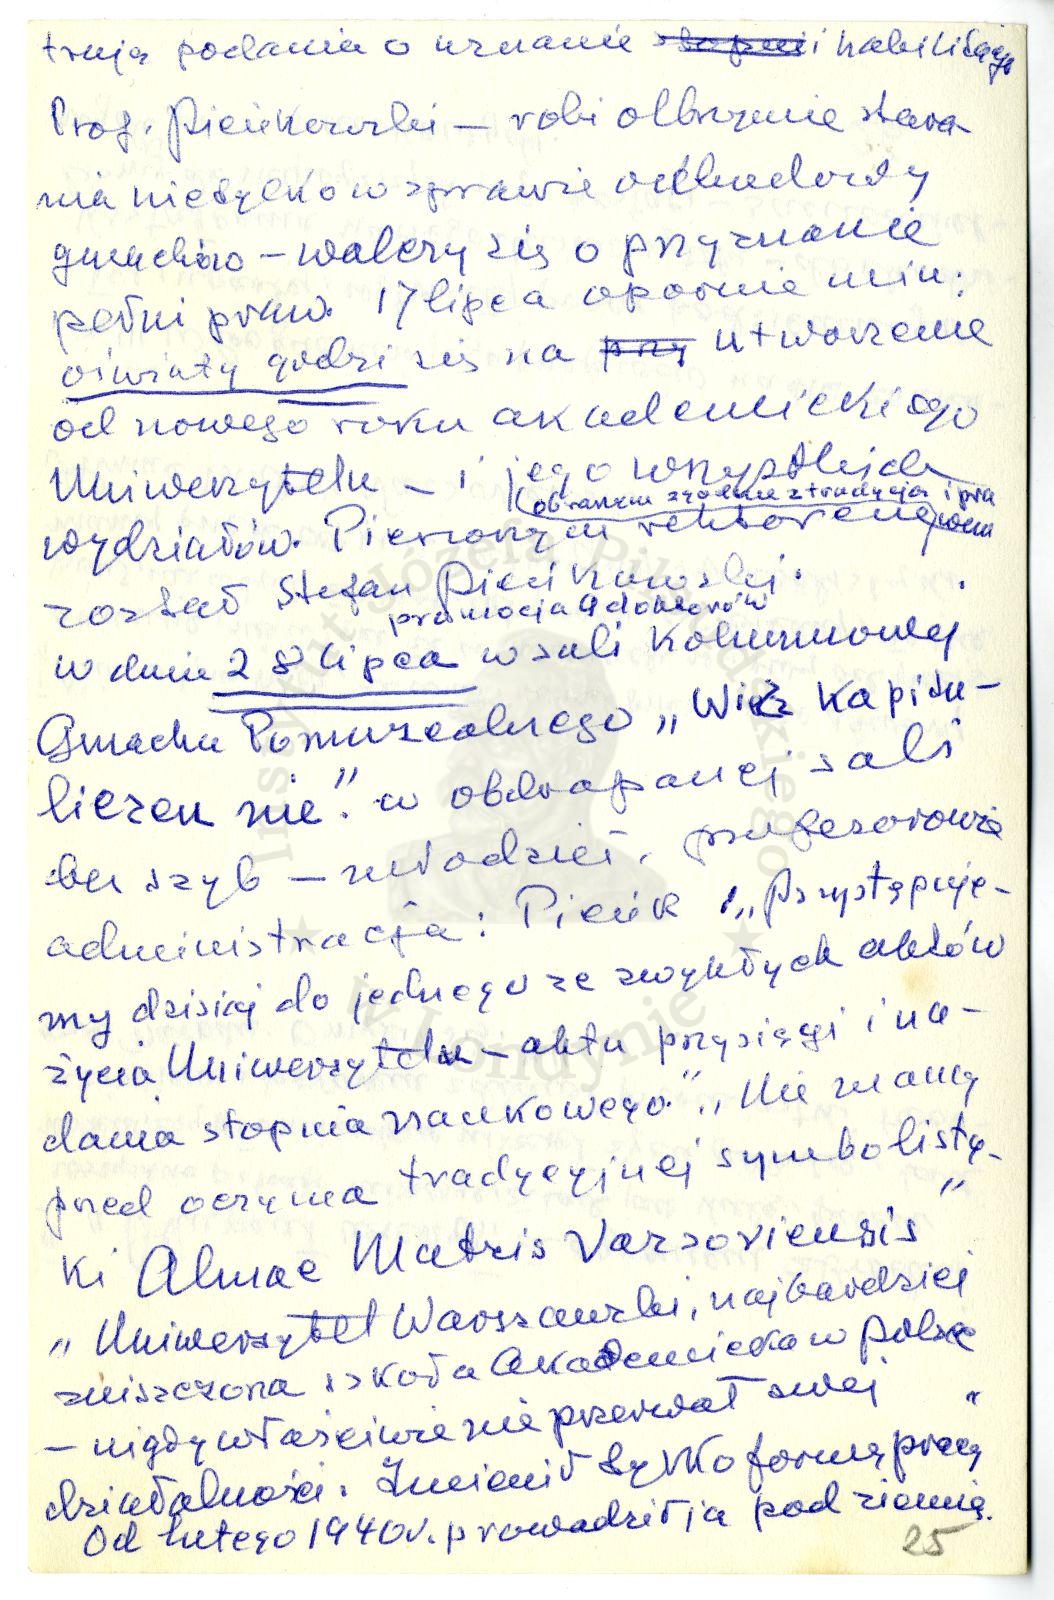 trują podania o uznanie stopni i habilitację
Prof. Pieńkowski – robi olbrzymie stara
nia nietylko w sprawie odbudowy
gmachów – walczy się o przyznanie
pełni praw. 17 lipca opornie min:
oświaty godzi się na przy utworzenie
od nowego roku akademickiego
Uniwersytetu – i jego wszystkich
(obranym zgodnie z tradycją i pra
wydziałów. Pierwszym rektorem wem
został Stefan Pieńkowski.
promocja 4 doktorów
w dniu 28 lipca w sali Kolumnowej
Gmachu Pomuzealnego „Wież kapitu-
lieren nie". w obdrapanej sali
bez szyb – młodzież, profesorowie
administracja: Pieńk „Przystępuje-
my dzisiaj do jednego ze zwykłych aktów
życia Uniwersytetu – aktu przysięgi i na-
dania stopnia naukowego." „Nie mamy
przed oczyma tradycyjnej symbolisty-
ki Almae Matris Varsoviensis"
„Uniwersytet Warszawski, najbardziej
zniszczona szkoła Akademicka w Polsce
– nigdy właściwie nie przerwał swej
działalności. Zmienił tylko formę pracy"
Od lutego 1940 r. prowadził ja pod ziemią.
25
Instytut Józefa Piłsudskiego
w Londynie